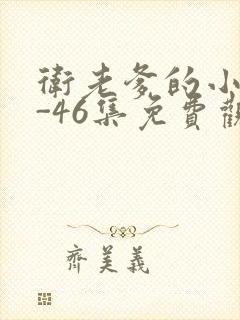 衛老爹的小
-46集免費觀
齊美義